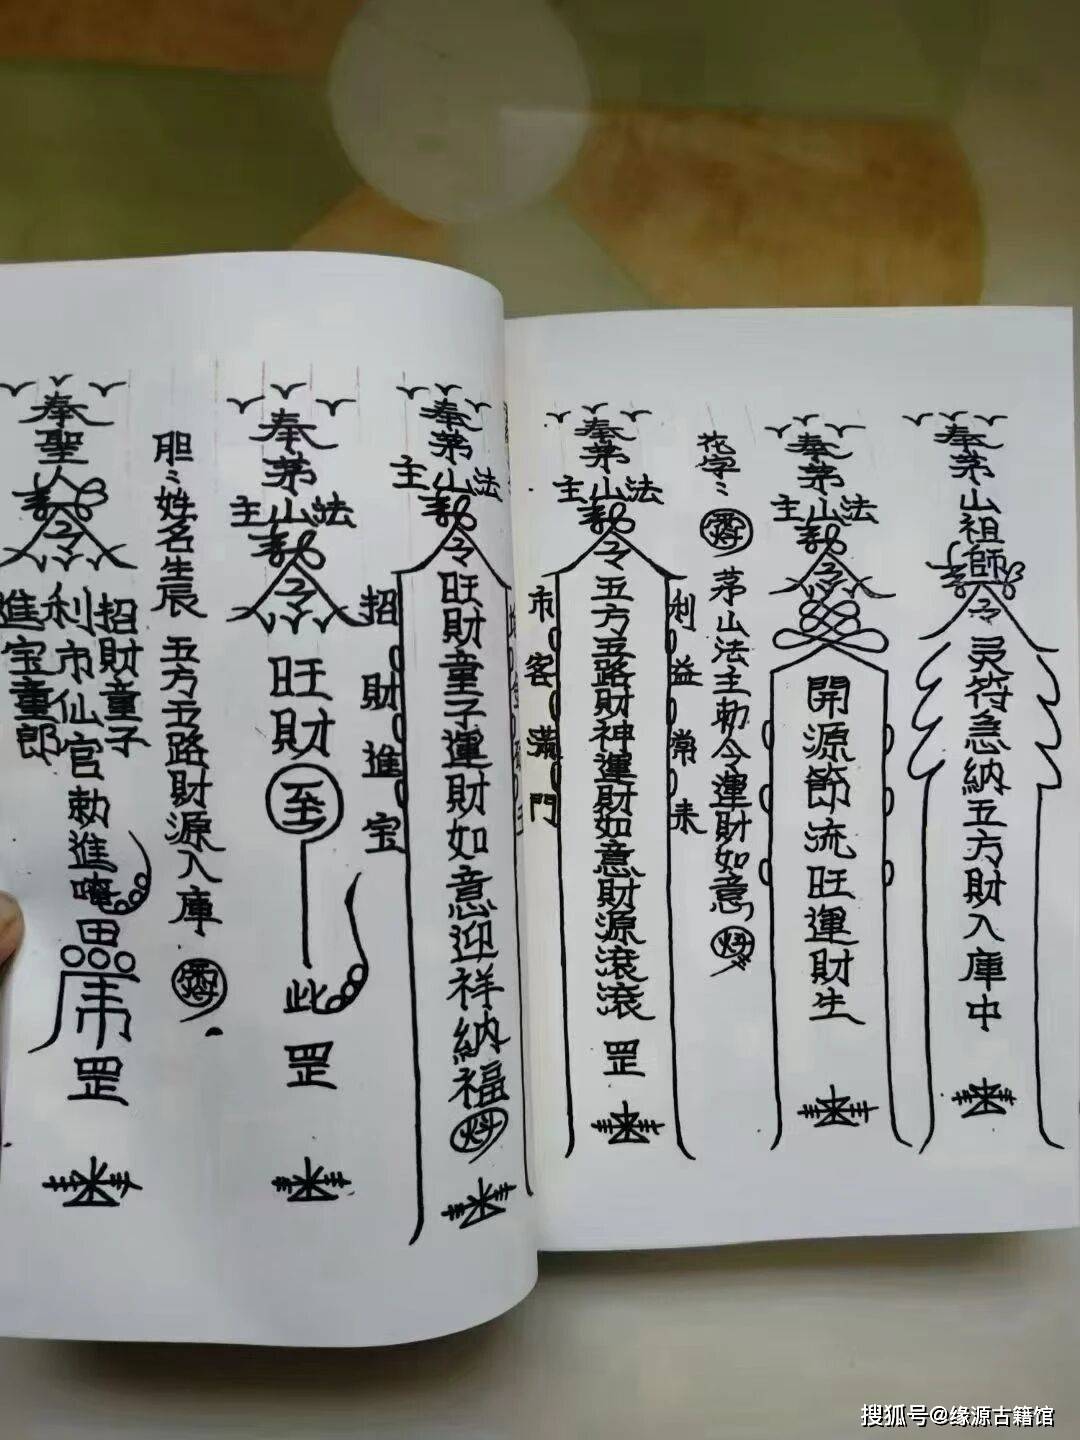 奉茅山祖師
令
灵符急納五方財入庫中
奉茅山法主
令
開源節流旺運財生
花字
茅山法主勅令運財如意
奉茅山法主
令
五方五路財神運財如意財源滾滾
罡
利益常来
市客满門
奉茅山法主
令
旺財童子運財如意迎祥納福
招財進宝
奉茅山法主
令
旺財
至
此
罡
胆
姓名生辰
五方五路財源入庫
奉聖
令
招財童子
利市仙官
進宝童郎
勅進唵
罡
搜狐号@缘源古籍馆